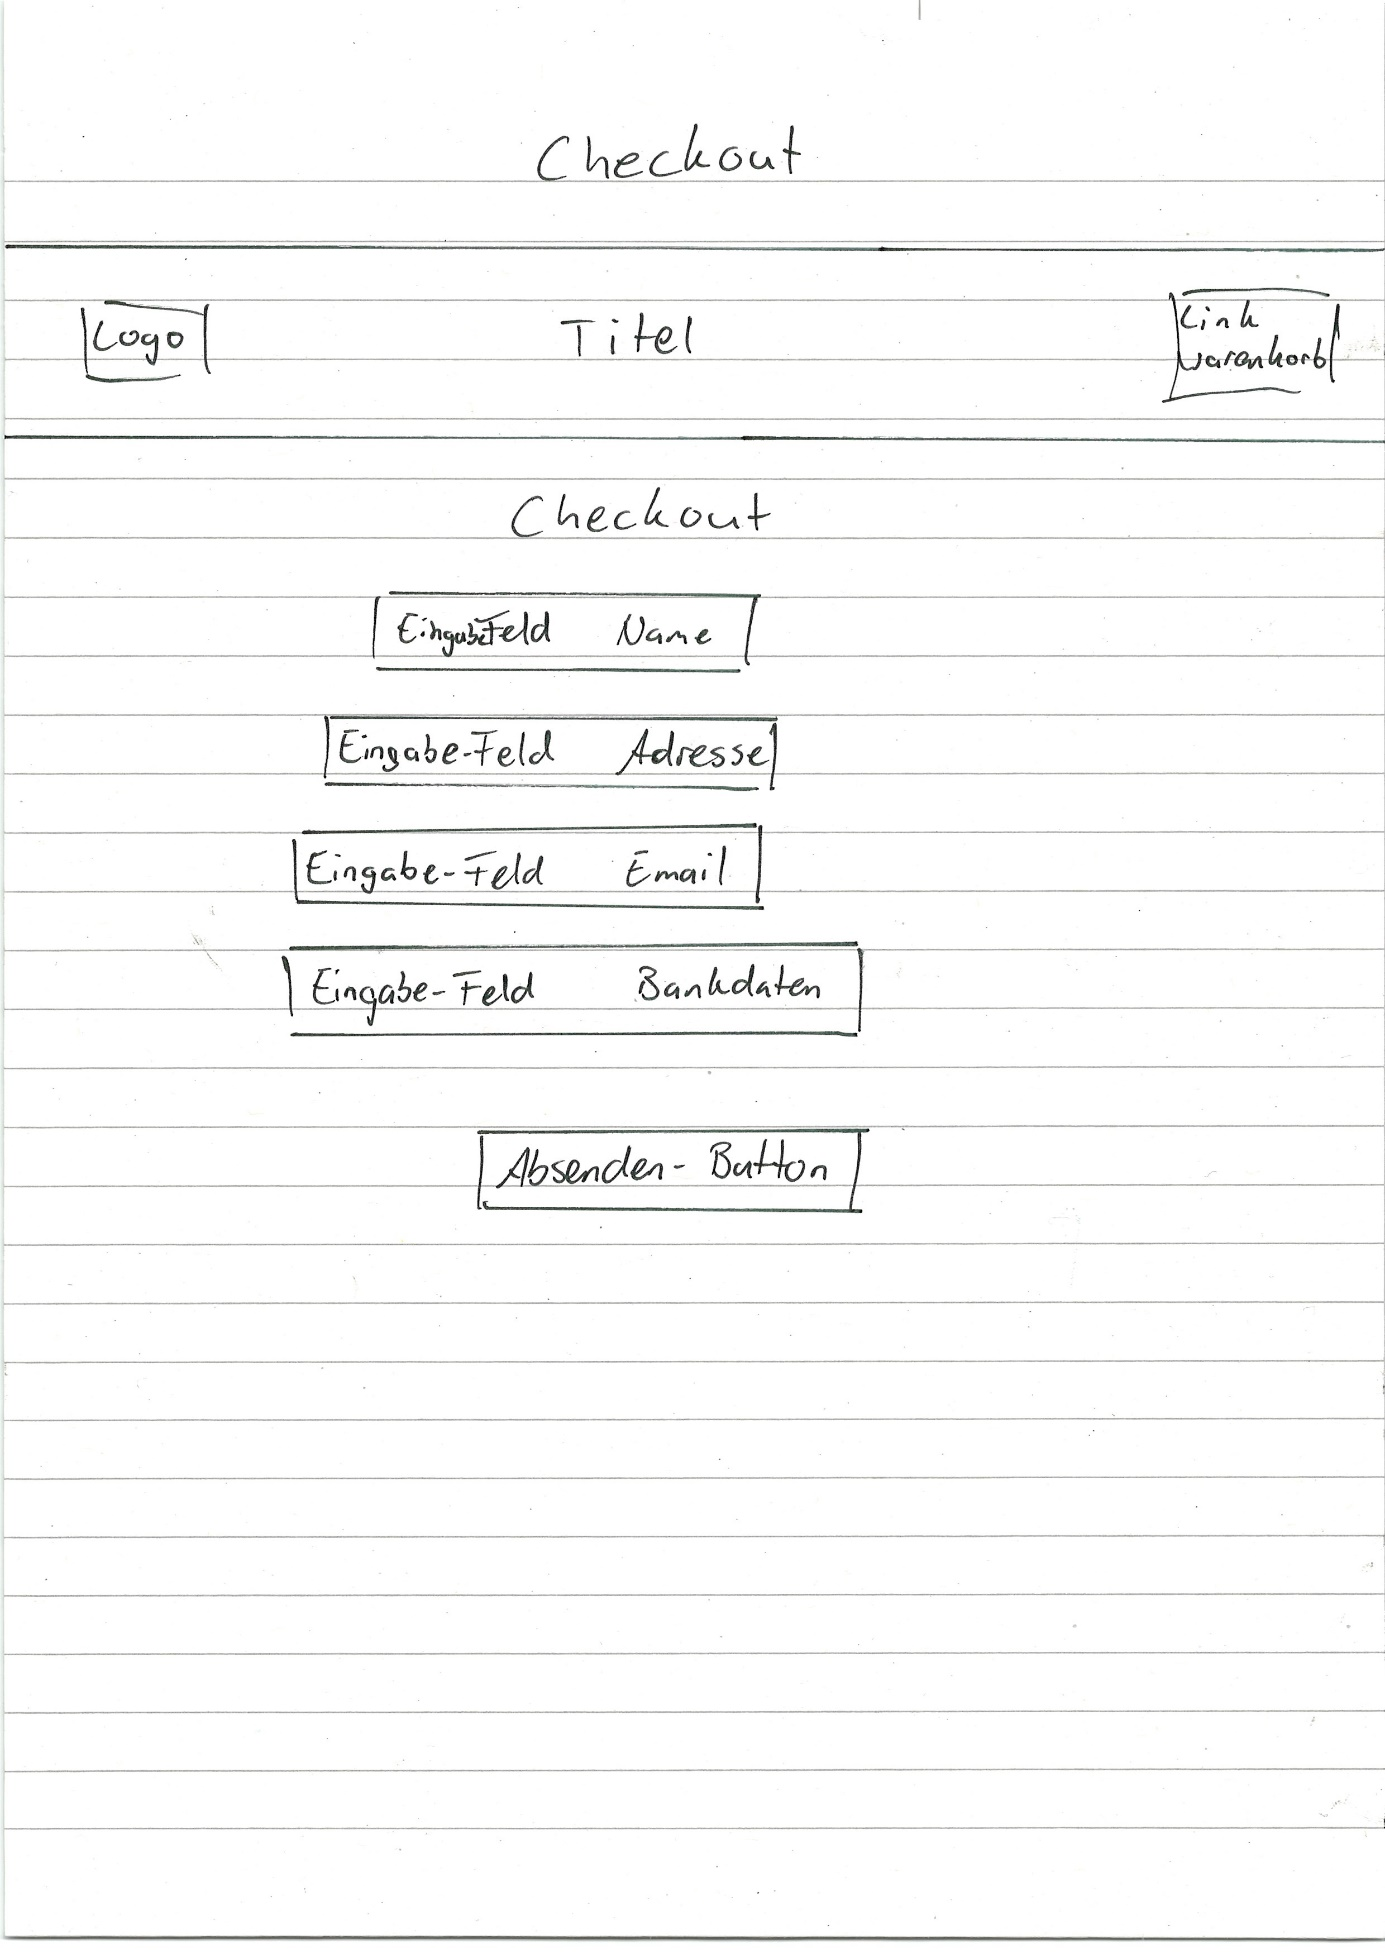 Checkout
Logo
Titel
Link
Warenkorb
Checkout
Eingabe-Feld Name
Eingabe-Feld Adresse
Eingabe-Feld Email
Eingabe-Feld Bankdaten
Absenden-Button